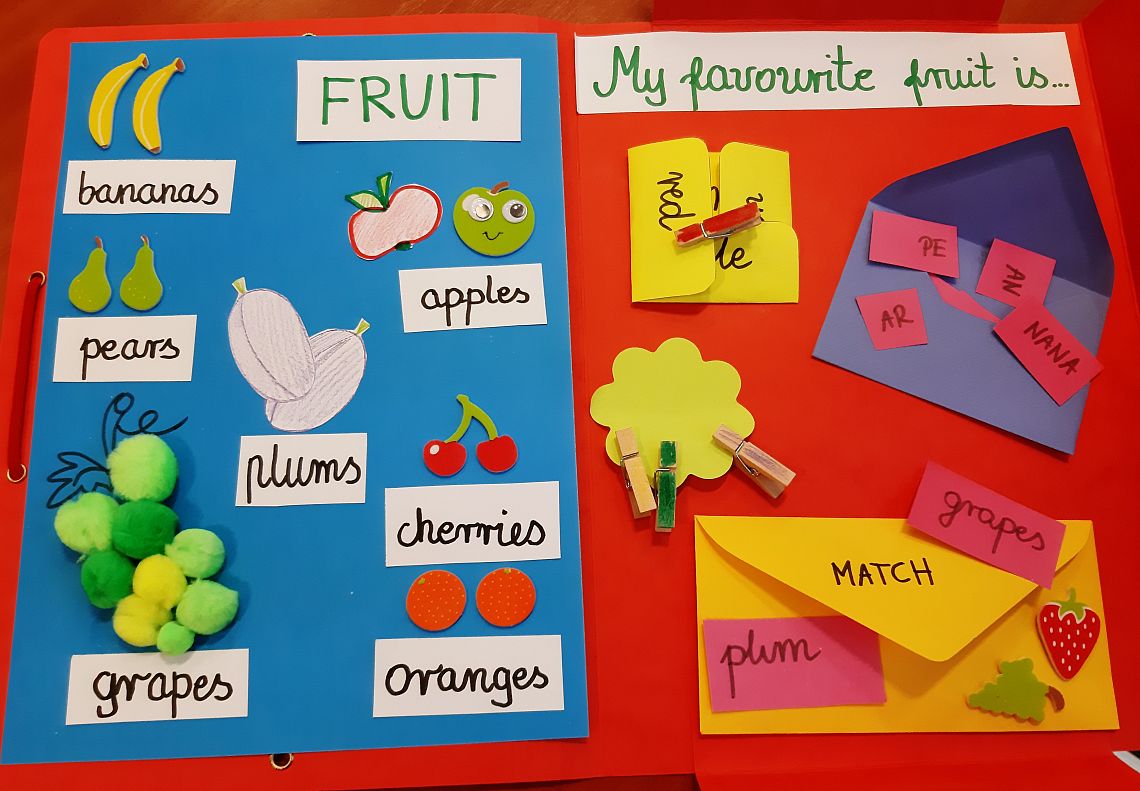 FRUIT
bananas
apples
pears
plums
cherries
grapes
oranges
My favourite fruit is...
red
PE
AN
AR
NANA
grapes
MATCH
plum